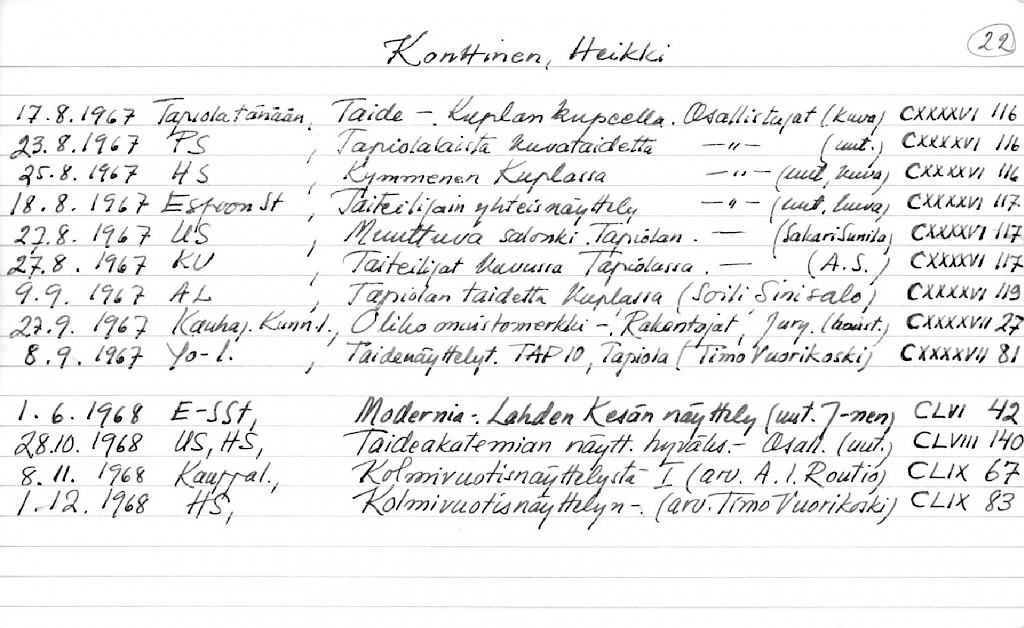 22
Konttinen, Heikki
17.8.1967 Tapiola tänään, Taide – Kuplan kupeella. Osallistujat (kuva) CXXXXVI 116
23.8.1967 PS , Tapiolalaista kuvataidetta —"— (uut.) CXXXXVI 116
25.8.1967 HS , Kymmenen Kuplassa —"— (uut, kuva) CXXXXVI 116
18.8.1967 Espoon St , Taiteilijain yhteisnäyttely —"— (uut, kuva) CXXXXVI 117.
27.8.1967 US , Muuttuva salonki Tapiolan. — (Sakari Sunila) CXXXXVI 117
27.8.1967 KU , Taiteilijat kuvussa Tapiolassa. — (A.S.) CXXXXVI 117
9.9.1967 AL , Tapiolan taidetta Kuplassa (Soili Sinisalo) CXXXXVI 119
27.9.1967 Kauhaj. Kunn.l., Oliko muistomerkki –, Rakentajat, Jury. (havist.) CXXXXVII 27
8.9.1967 Yo-l. , Taidenäyttelyt. TAP 10, Tapiola (Timo Vuorikoski) CXXXXVII 81
1.6.1968 E-SSt, Modernia-. Lahden Kesän näyttely (uut. J-nen) CLVI 42
28.10.1968 US, HS, Taideakatemian näytt. hyväks.– Osall. (uut.) CLVIII 140
8.11.1968 Kauppal., Kolmivuotisnäyttelystä I (arv. A.I. Routio) CLIX 67
1.12.1968 HS, Kolmivuotisnäyttelyn-. (arv. Timo Vuorikoski) CLIX 83